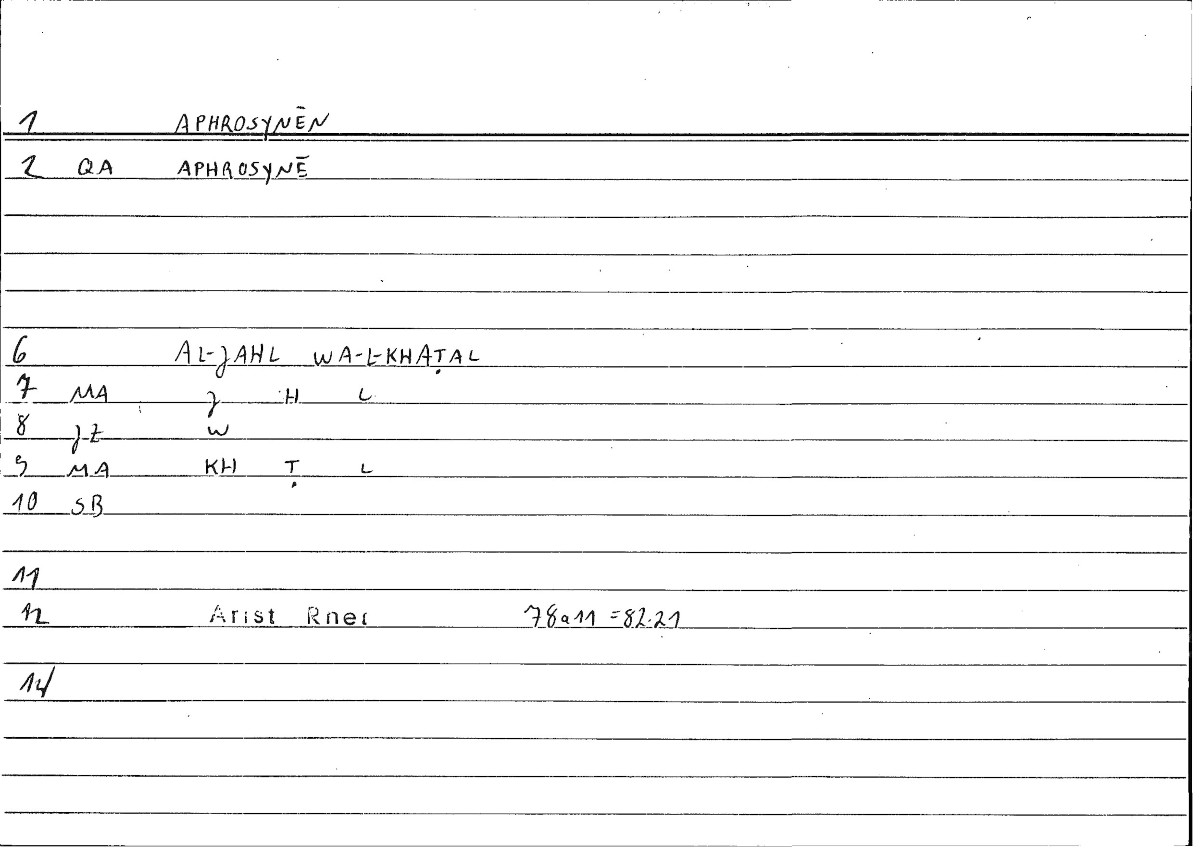 1 APHROSYNĒN
2 QA APHROSYNĒ
6 AL-JAHL WA-L-KHAṬAL
7 MA J H L
8 JZ W
9 MA KH Ṭ L
10 SB
11
12 Arist Rhet 78a11 =82.21
14